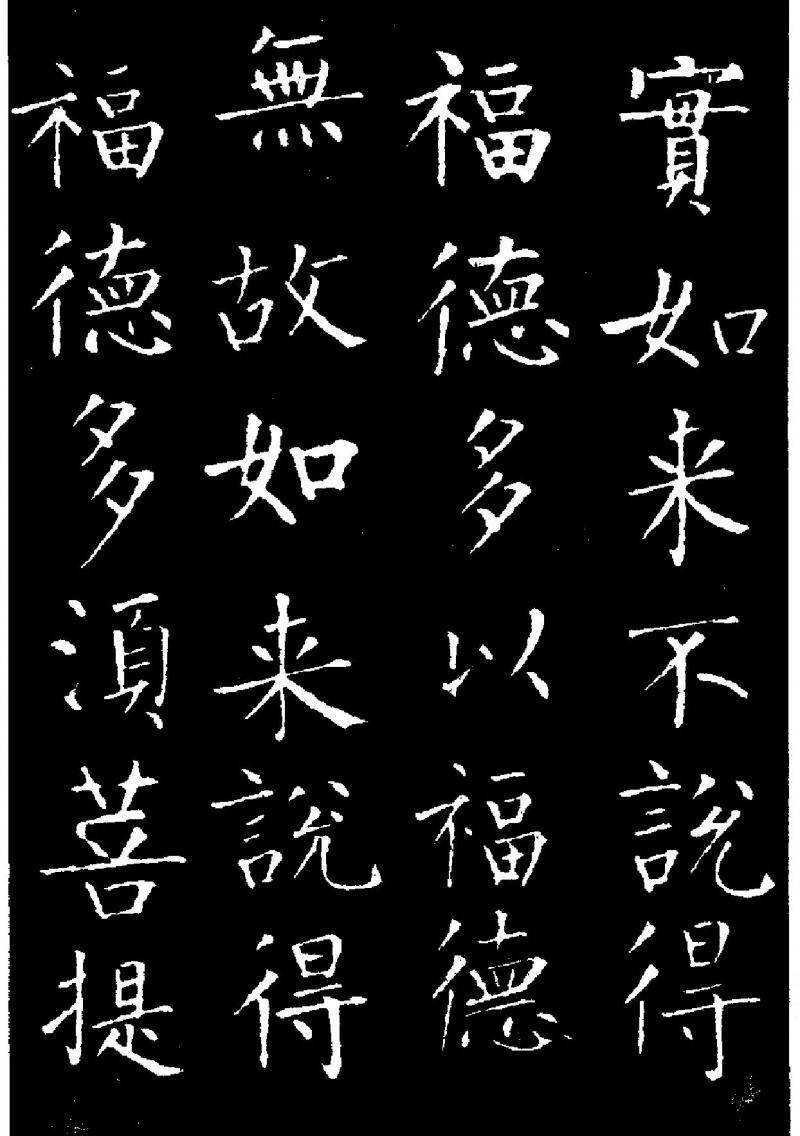 實如来不說得
福德多以福德
無故如来說得
福德多湏菩提